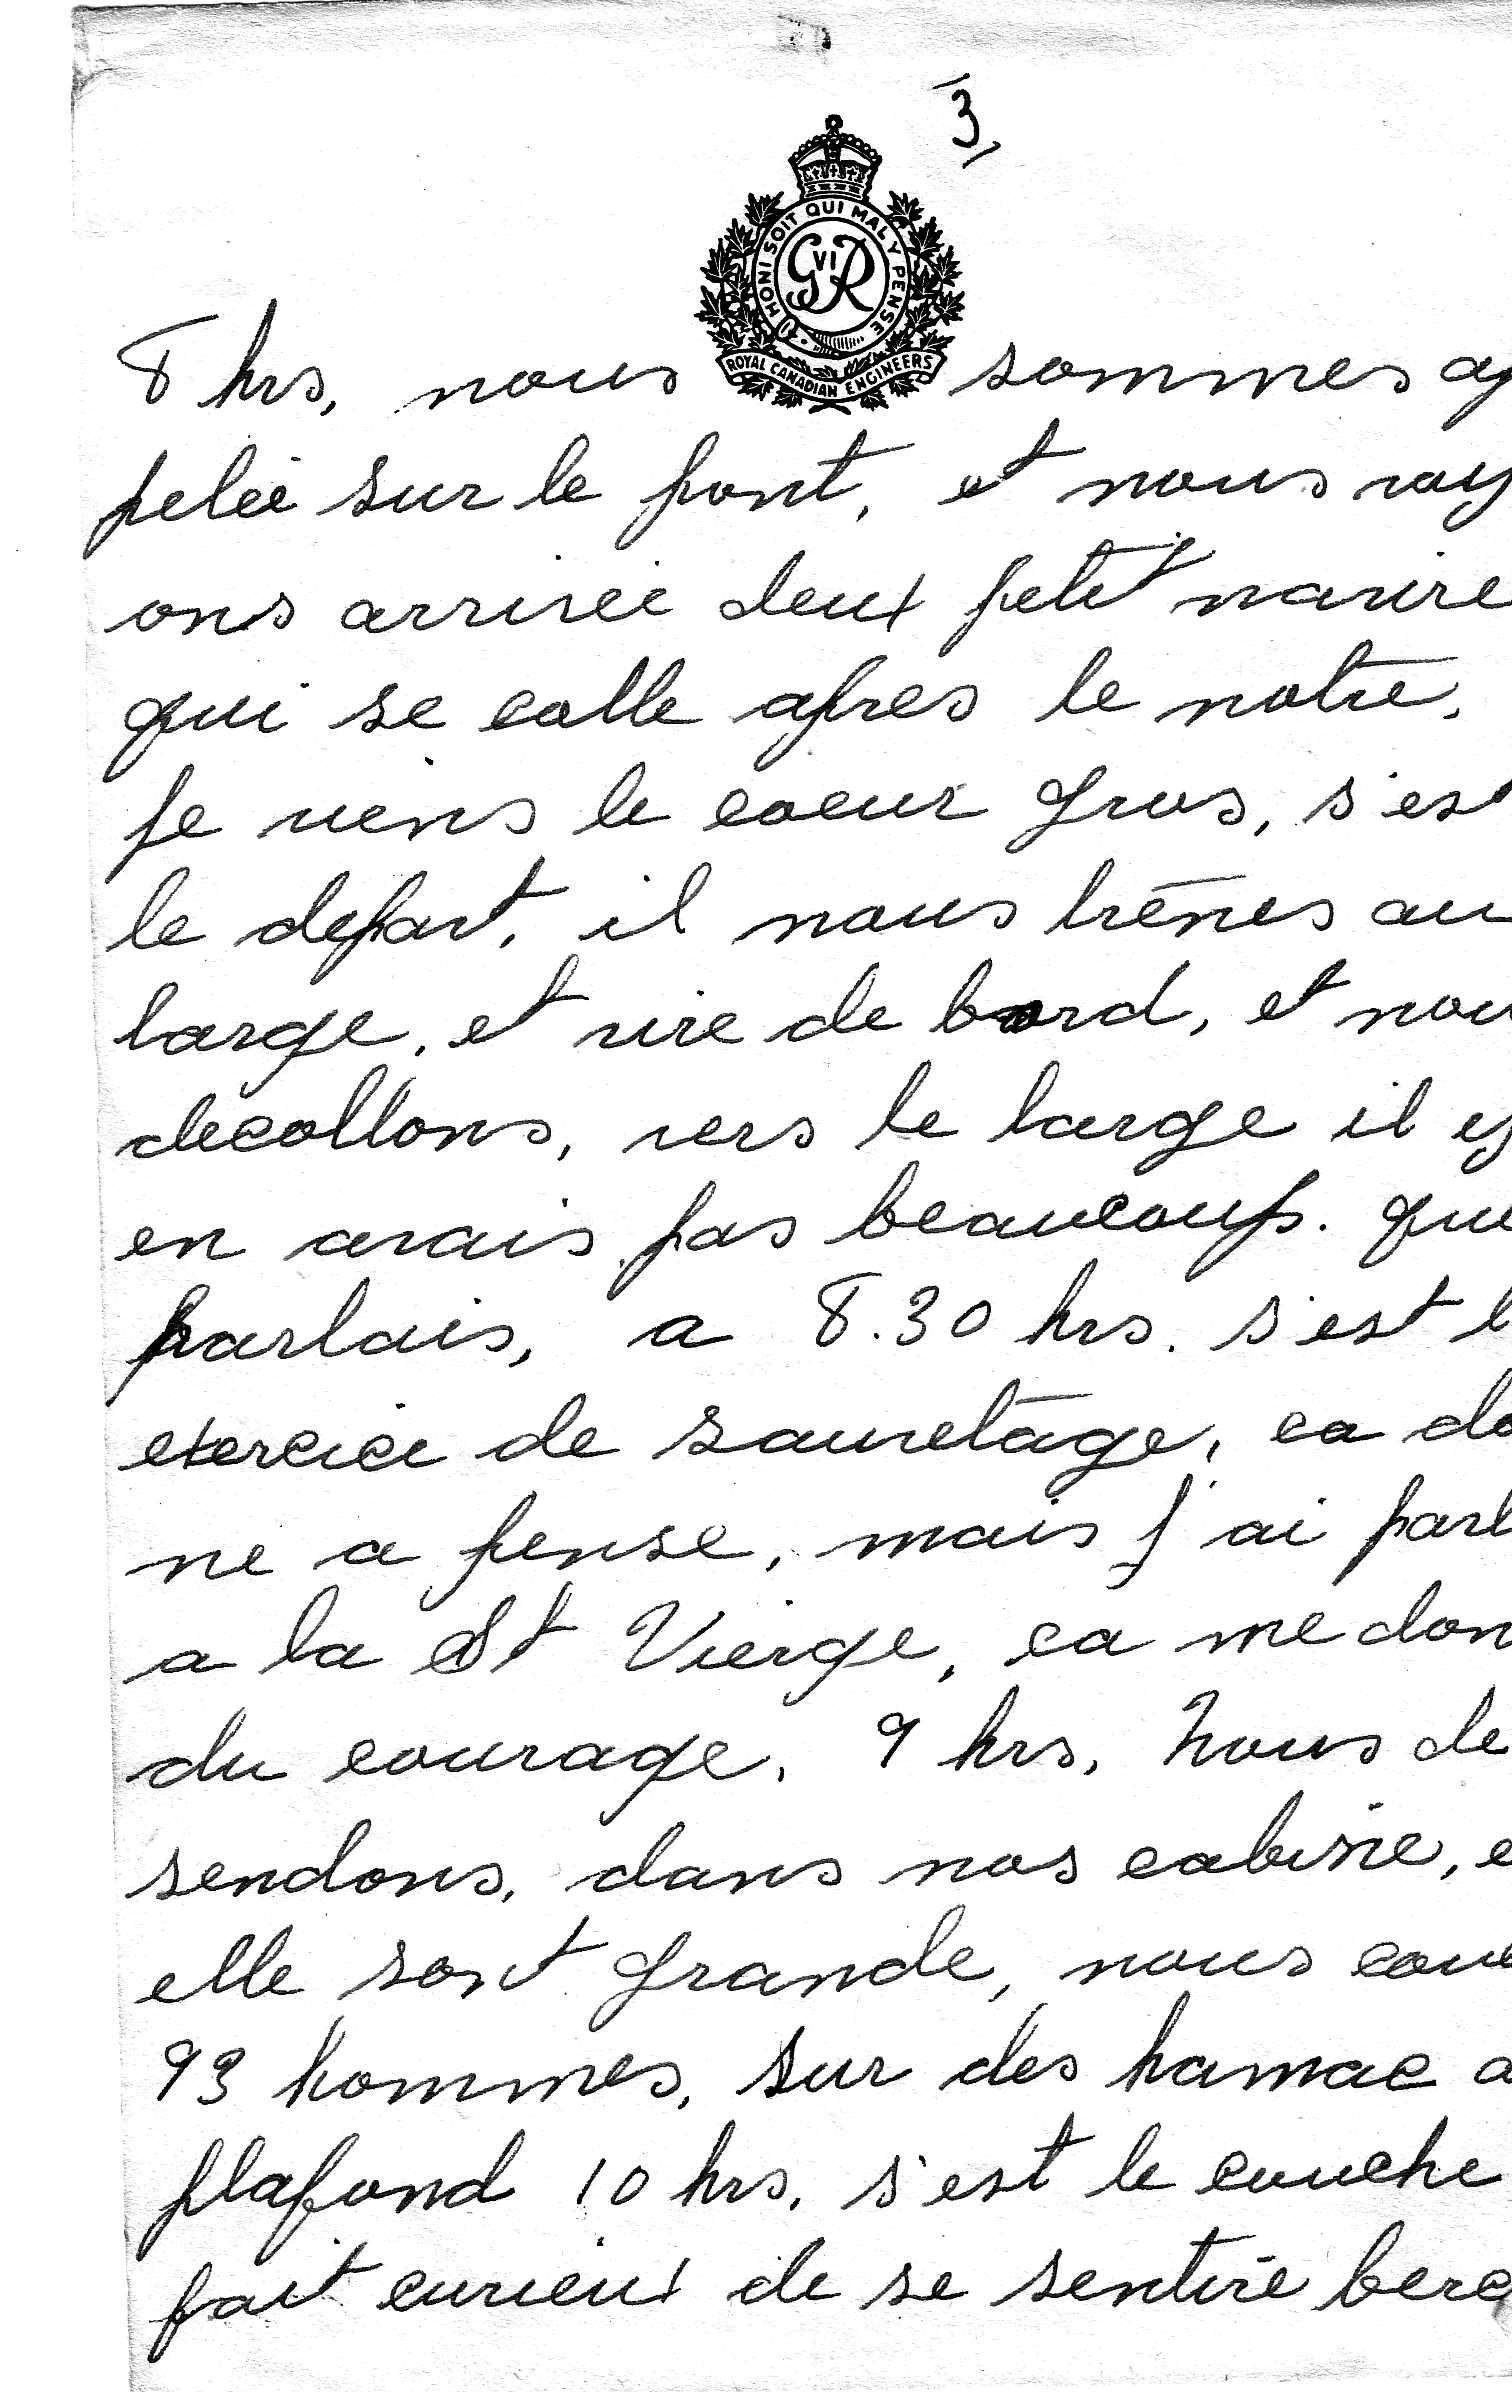 3,
HONI SOIT QUI MAL Y PENSE
G VI R
ROYAL CANADIAN ENGINEERS
8 hrs, nous sommes ap
pelée sur le pont, et nous voy
ons arrivée deux petit navire
qui se colle apres le notre,
je viens le coeur gros, s'est
le depart, il nous trênes au
large, et vire de bord, et nou
decollons, vers le large il y
en avais pas beaucoup. que
parlais, a 8.30 hrs. s'est l
exercice de sauvetage, ca do
ne a pense, mais j'ai parl
a la St Vierge, ca me don
du courage, 9 hrs, Nous de
sendons, dans nos cabine, e
elle sont grande, nous couc
93 hommes, sur des hamac a
plafond 10 hrs, s'est le couche
fait curieux de se sentire berc